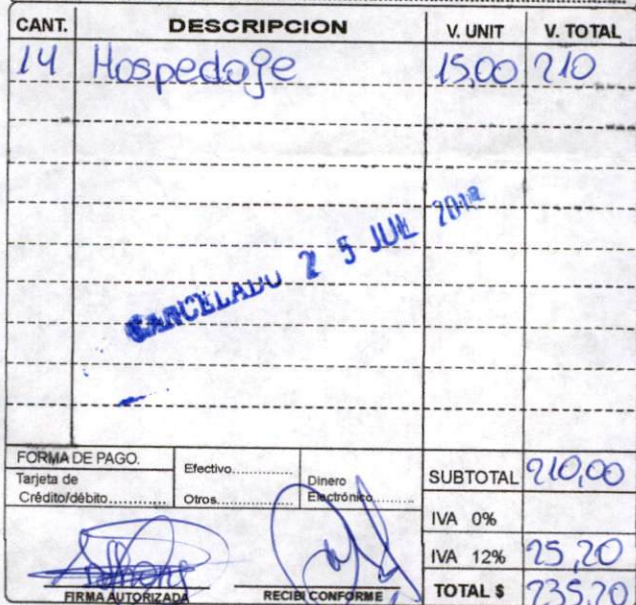 CANT. DESCRIPCION V. UNIT V. TOTAL
14 Hospedaje 15,00 210
CANCELADO 25 JUL
FORMA DE PAGO.
Tarjeta de Crédito/débito............ Efectivo.................... Otros.................... Dinero Electrónico............
SUBTOTAL 210,00
IVA 0%
IVA 12% 25,20
TOTAL $ 235,20
FIRMA AUTORIZADA RECIBI CONFORME